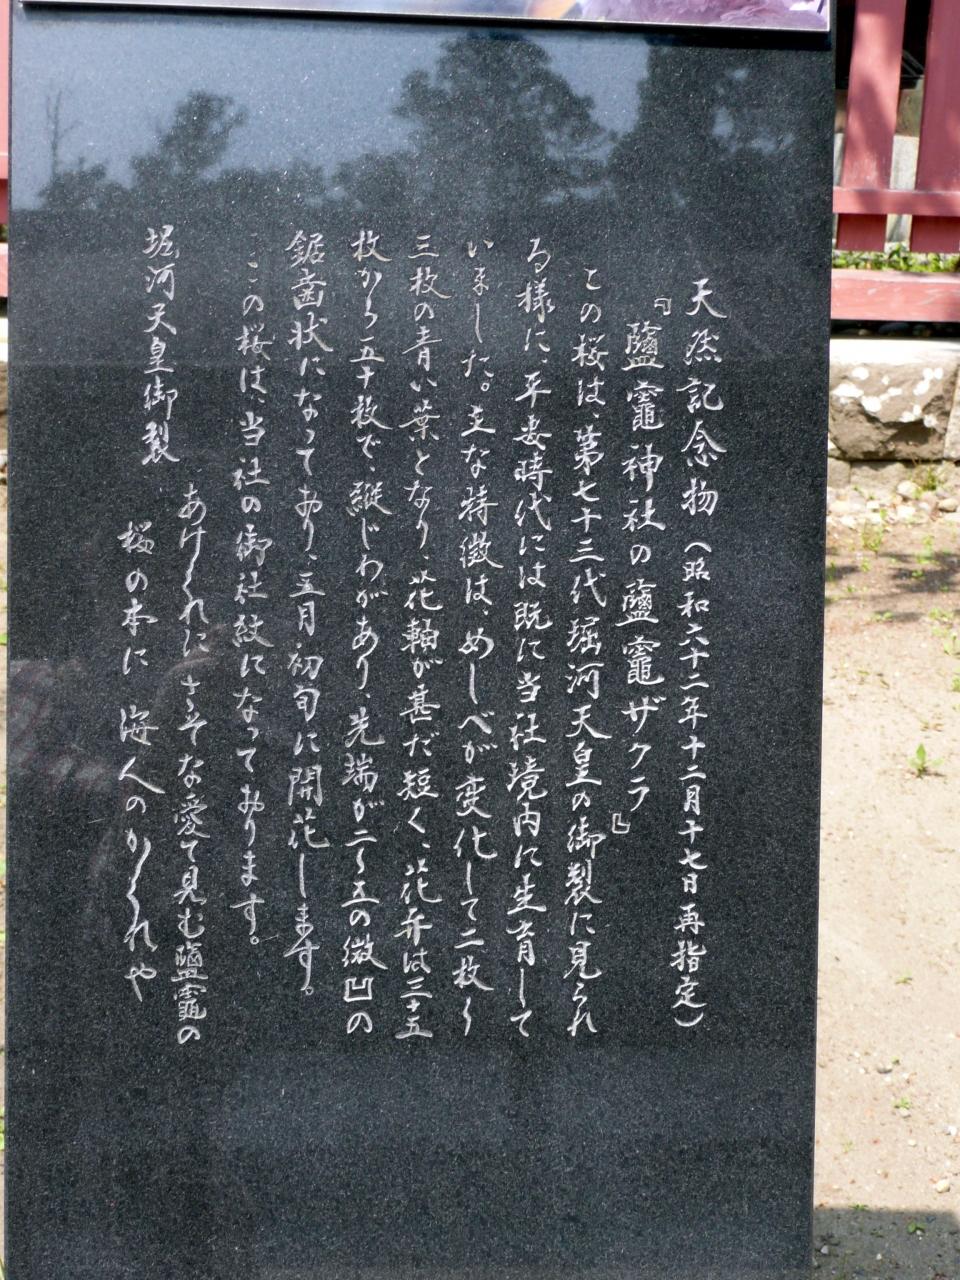 天然記念物（昭和六十二年十二月十七日再指定）
『鹽竈神社の鹽竈ザクラ』
この桜は、第七十三代堀河天皇の御製に見られ
る様に、平安時代には既に当社境内に生育して
いました。主な特徴は、めしべが変化して二枚〜
三枚の青い葉となり、花軸が甚だ短く、花弁は三十五
枚から五十枚で、縦じわがあり、先端が二〜五の微凹の
鋸歯状になっており、五月初旬に開花します。
この桜は、当社の御社紋になっております。
堀河天皇御製
あけくれにさぞな愛て見む鹽竈の
桜の本に海人のかくれや